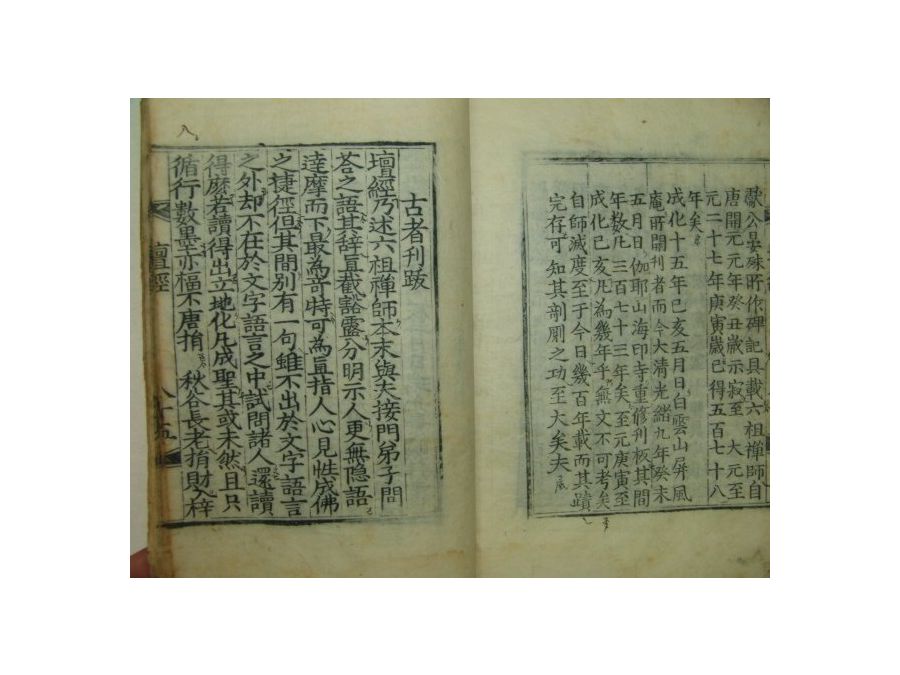 獻公晏殊所作碑記具載六祖禪師自
唐開元元年癸丑歲示寂至 大元至
元二十七年庚寅歲已得五百七十八
年矣
成化十五年已亥五月日白雲山屏風
庵所開刊者而今大淸光緒九年癸未
五月日伽耶山海印寺重修刊板其間
年数凡三百七十三年矣至元庚寅至
成化已亥凡為幾年乎無文不可考矣
自師滅度至于今日幾百年載而其蹟
完存可知其剖劂之功至大矣夫
古者刊跋
壇經乃述六祖禪師本末與夫接門弟子問
荅之語其辞直截豁露分明示人更無隐語
達摩而下最為竒特可為直指人心見性成佛
之捷徑但其間別有一句雖不出於文字語言
之外却不在於文字語言之中試問諸人還讀
得麽若讀得出立地化凡成聖其或未然且只
循行數墨亦福不唐捐 秋谷長老捐財入梓
壇經
八十五